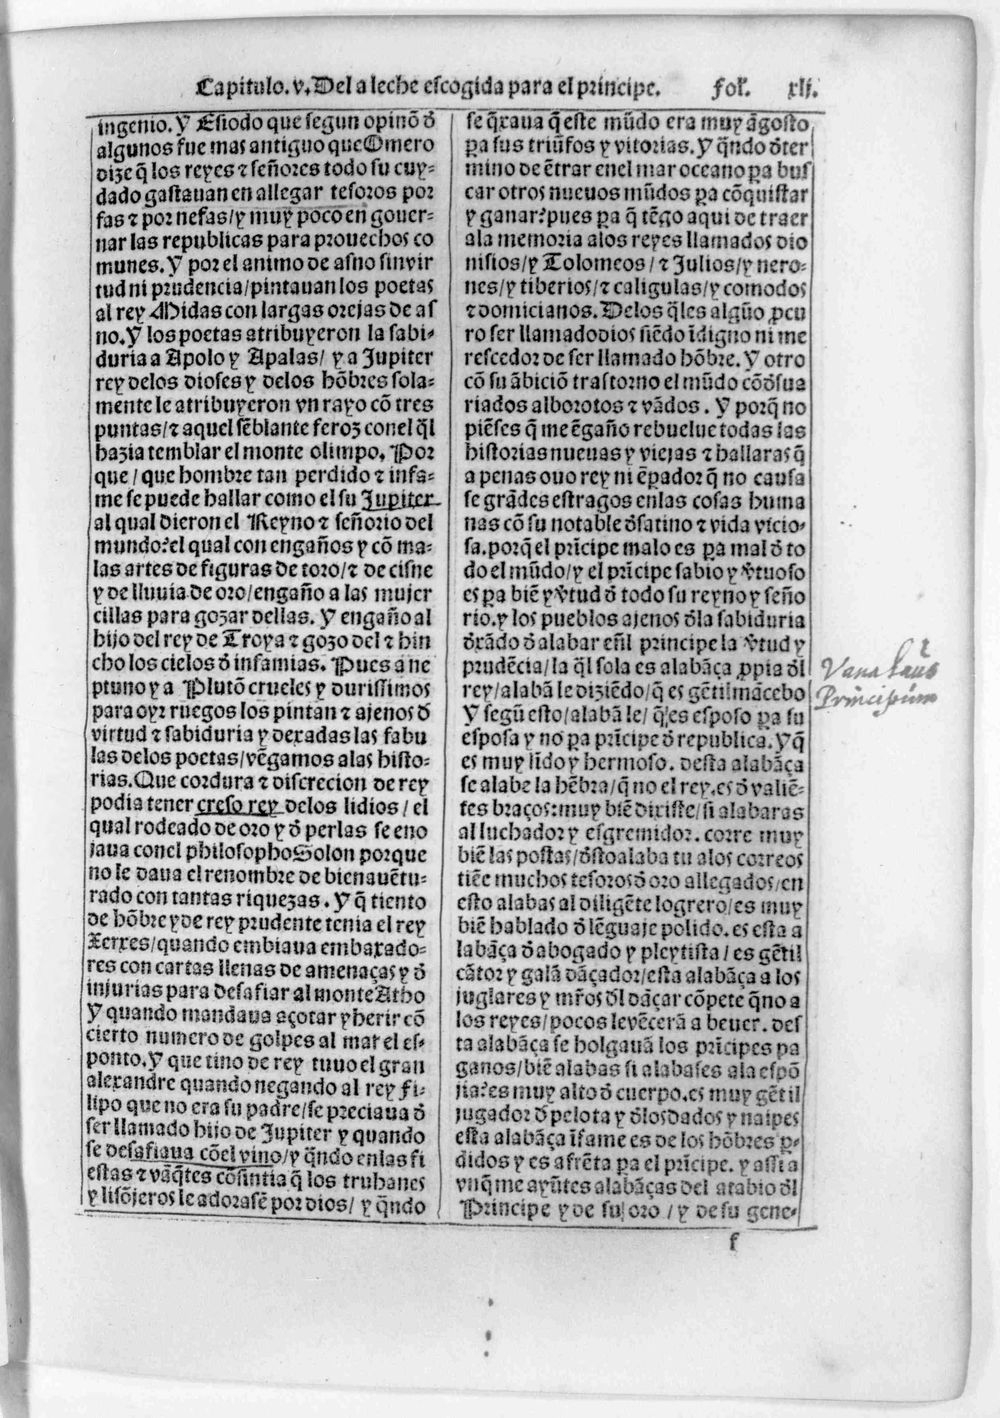 Capitulo.v.Dela leche escogida para el principe. fol̃. xlj.
ingenio.Y Esiodo que segun opinõ đ
algunos fue mas antiguo que Omero
dize q̃ los reyes ⁊ señores todo su cuy-
dado gastauan en allegar tesoros por
fas ⁊ por nefas/y muy poco en gouer-
nar las republicas para prouechos co
munes. Y por el animo de asno sin vir
tud ni prudencia/pintauan los poetas
al rey Midas con largas orejas de as
no.Y los poetas atribuyeron la sabi-
duria a Apolo y Apalas/ y a Jupiter
rey delos dioses y delos hõbres sola-
mente le atribuyeron vn rayo cõ tres
puntas/⁊ aquel sẽblante feroz conel q̃l
hazia temblar el monte olimpo. Por
que/que hombre tan perdido ⁊ infa-
me se puede hallar como el su Jupiter
al qual dieron el Reyno ⁊ señorio del
mundo?el qual con engaños y cõ ma-
las artes de figuras de toro/⁊ de cisne
y de lluuia de oro/engaño a las mujer
cillas para gozar dellas. Y engaño al
hijo del rey de Troya ⁊ gozo del ⁊ hin
cho los cielos đ infamias. Pues a ne
ptuno y a Plutõ crueles y durissimos
para oyr ruegos los pintan ⁊ ajenos đ
virtud ⁊ sabiduria y dexadas las fabu
las delos poetas/vẽgamos alas histo-
rias.Que cordura ⁊ discrecion de rey
podia tener creso rey delos lidios/ el
qual rodeado de oro y đ perlas se eno
jaua conel philosopho Solon porque
no le daua el renombre de bienauẽtu-
rado con tantas riquezas. Y q̃ tiento
de hõbre y de rey prudente tenia el rey
Xerxes/quando embiaua embaxado-
res con cartas llenas de amenaças y đ
injurias para desafiar al monte Atho
Y quando mandaua açotar y herir cõ
cierto numero de golpes al mar el es-
ponto.Y que tino de rey tuuo el gran
alexandre quando negando al rey fi-
lipo que no era su padre/se preciaua đ
ser llamado hijo de Jupiter y quando
se desafiaua cõel vino/y q̃ndo enlas fi
estas ⁊ vãq̃tes cõsintia q̃ los truhanes
y lisõjeros le adorasẽ por dios/ y q̃ndo
se q̃xaua q̃ este mũdo era muy ãgosto
pa sus triũfos y vitorias.Y q̃ndo đter
mino de ẽtrar enel mar oceano pa bus
car otros nueuos mũdos pa cõquistar
y ganar?pues pa q̃ tẽgo aqui de traer
ala memoria alos reyes llamados dio
nisios/y Tolomeos/⁊ Julios/y nero-
nes/y tiberios/⁊ caligulas/y comodos
⁊ domicianos. Delos q̃les algũo pcu
ro ser llamado dios siẽdo ĩdigno ni me
rescedor de ser llamado hõbre. Y otro
cõ su ãbiciõ trastorno el mũdo cõ đsua
riados alborotos ⁊ vãdos. Y porq̃ no
piẽses q̃ me ẽgaño rebuelue todas las
historias nueuas y viejas ⁊ hallaras q̃
a penas ouo rey ni ẽpador q̃ no causa
se grãdes estragos enlas cosas huma
nas cõ su notable đsatino ⁊ vida vicio-
sa.porq̃ el prĩcipe malo es pa mal đ to
do el mũdo/y el prĩcipe sabio y v̓tuoso
es pa biẽ y v̓tud đ todo su reyno y seño
rio.y los pueblos ajenos đla sabiduria
đxãdo đ alabar eñl principe la v̓tud y
prudẽcia/la q̃l sola es alabãça ppia đl
rey/alabã le diziẽdo/q̃ es gẽtil mãcebo
Y segũ esto/alabã le/ q̃ es esposo pa su
esposa y no pa prĩcipe đ republica.Y q̃
es muy lĩdo y hermoso. desta alabãça
se alabe la hẽbra/q̃ no el rey.es đ valiẽ-
tes braços:muy biẽ dixiste/si alabaras
al luchador y esgremidor. corre muy
biẽ las postas/đsto alaba tu alos correos
tiẽe muchos tesoros đ oro allegados/en
esto alabas al diligẽte logrero/es muy
biẽ hablado đ lẽguaje polido. es esta a
labãça đ abogado y pleytista/ es gẽtil
cãtor y galã dãçador/esta alabãça a los
juglares y mr̃os đl dãçar cõpete q̃ no a
los reyes/pocos le vẽcerã a beuer. des
ta alabãça se holgauã los prĩcipes pa
ganos/biẽ alabas si alabases ala espõ
jia?es muy alto đ cuerpo.es muy gẽtil
jugador đ pelota y đlos dados y naipes
esta alabãça ĩfame es de los hõbres p-
didos y es afrẽta pa el prĩcipe. y assi a
vnq̃ me ayũtes alabãças del atabio đl
Principe y de su oro / y de su gene-
Vana Laus
Principum
f